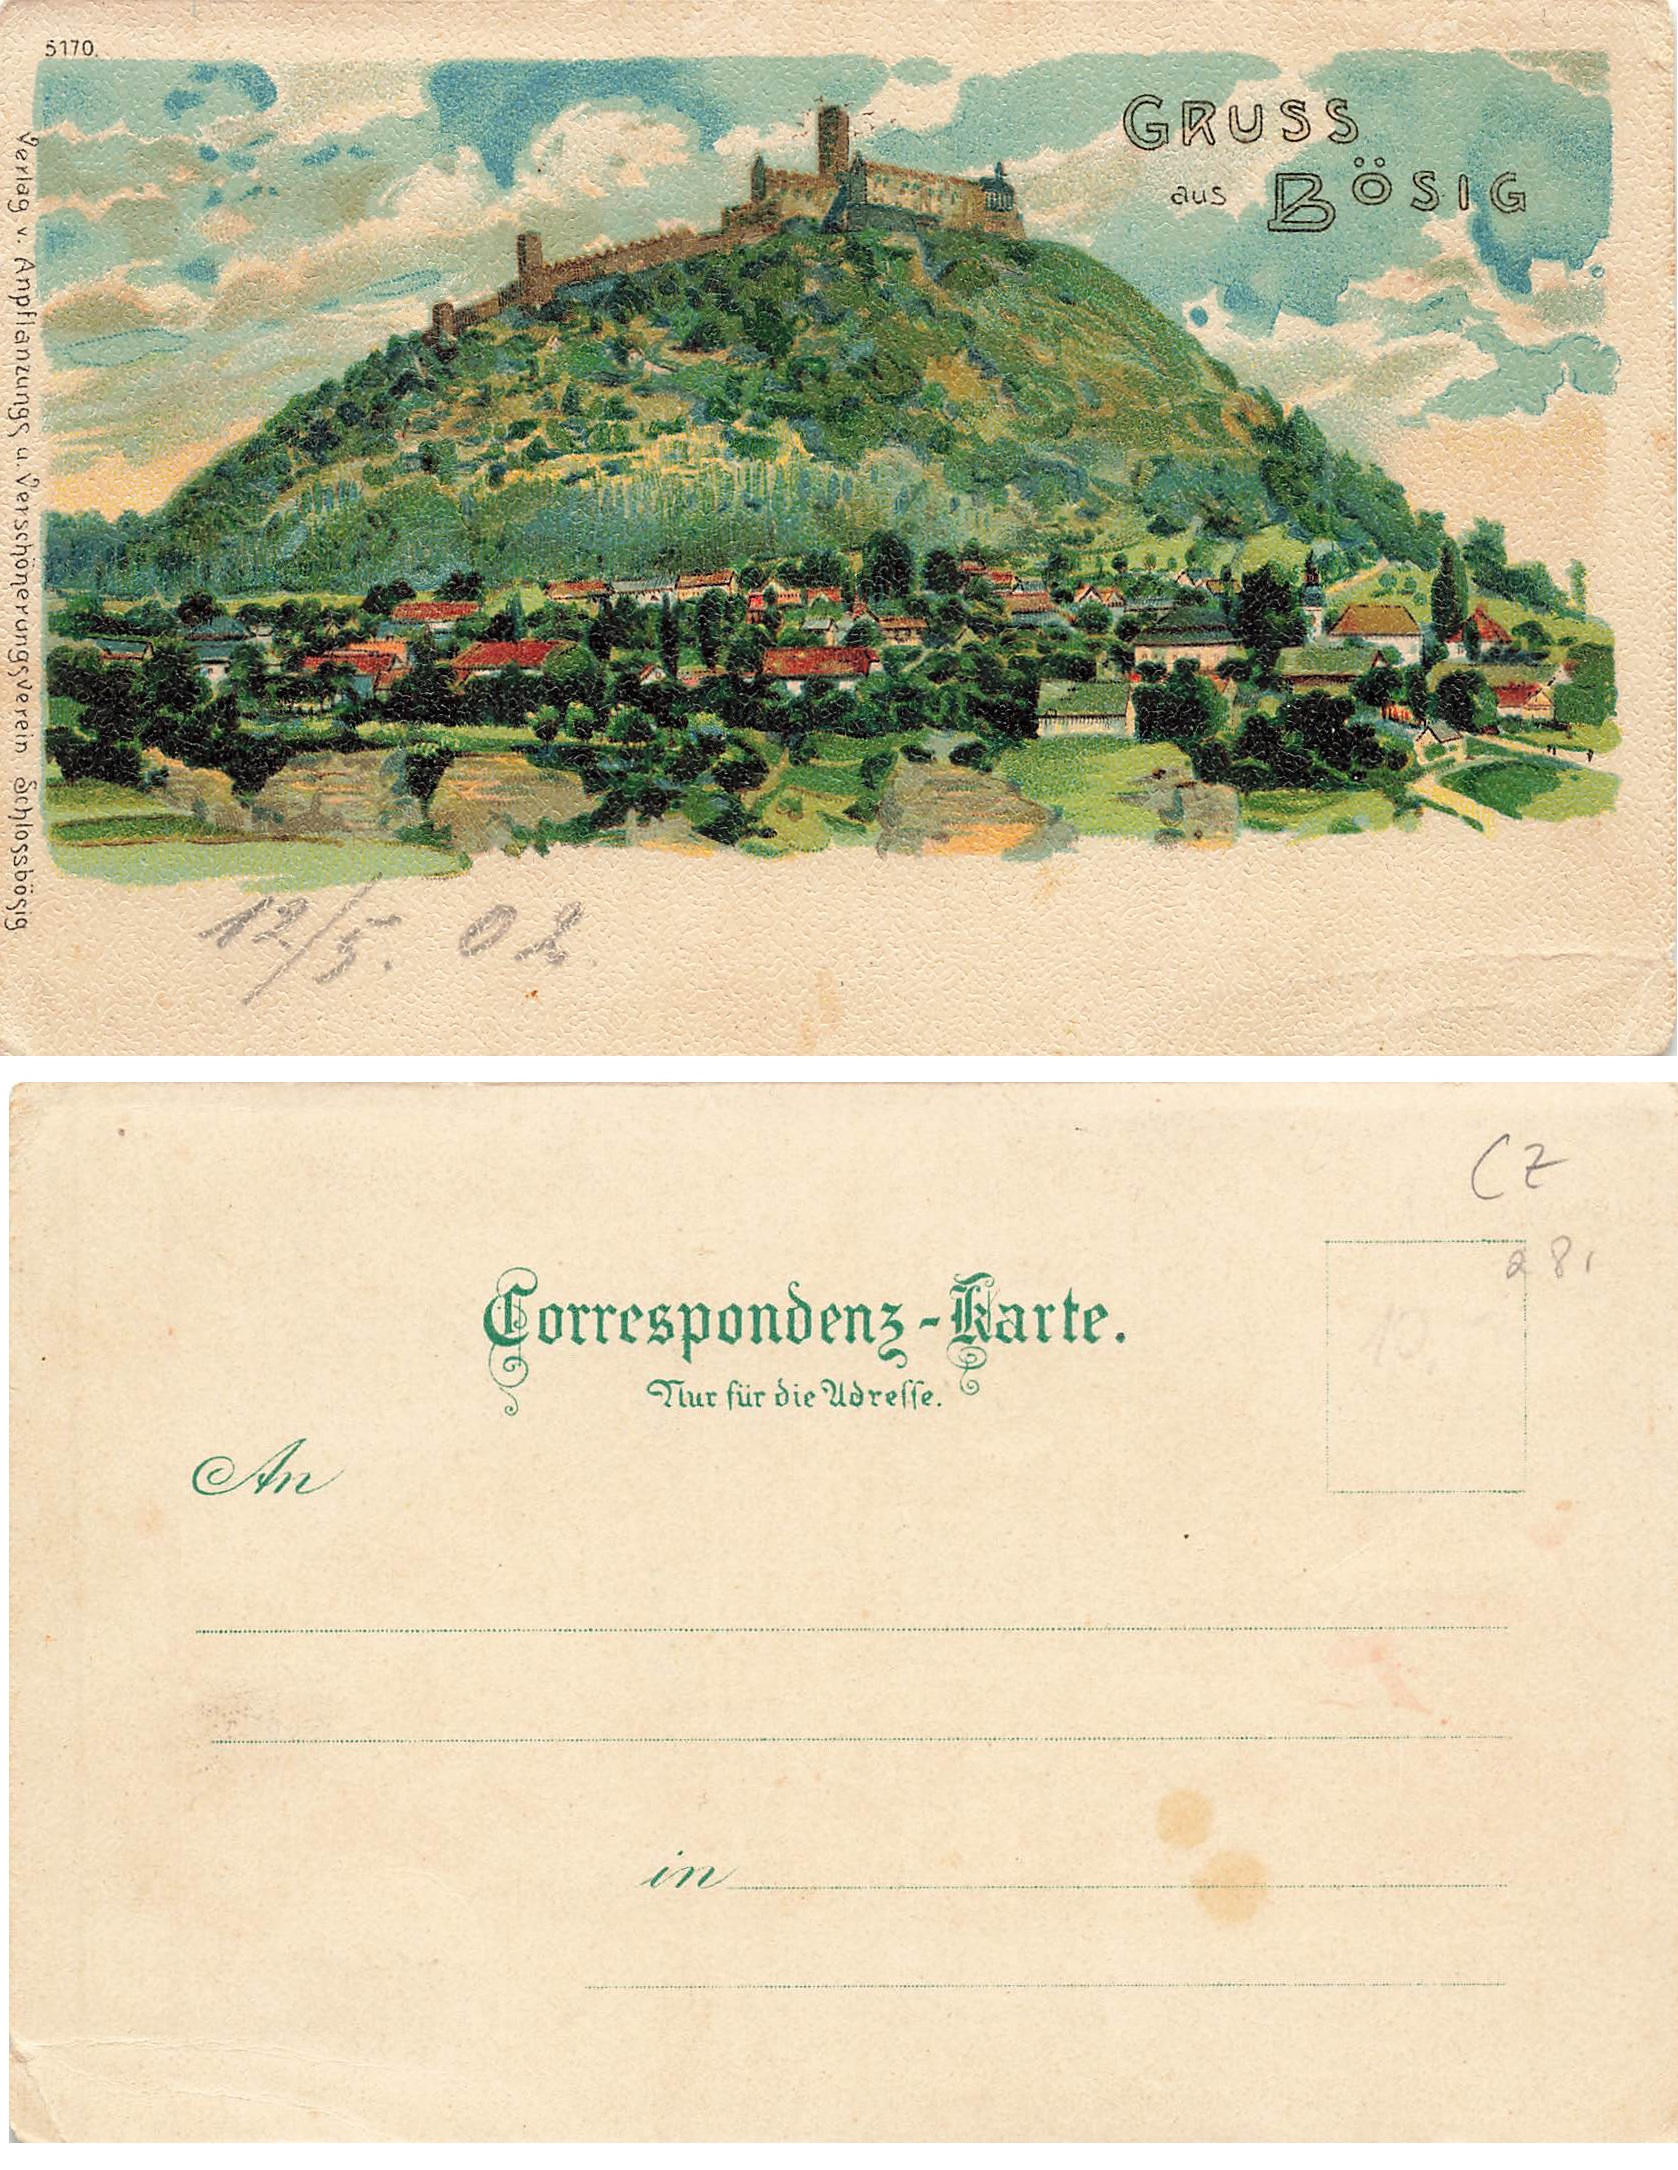 5170.
GRUSS
aus BÖSIG
Verlag v. Anpflanzungs u. Verschönerungsverein Schlossbösig
12/5. 02.
CZ
28,
Correspondenz-Karte.
Nur für die Adresse.
An
in